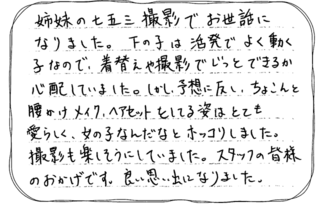 姉妹の七五三撮影でお世話に
なりました。下の子は活発でよく動く
子なので、着替えや撮影でじっとできるか
心配していました。しかし予想に反し、ちょこんと
腰かけメイク、ヘアセットをしてる姿はとても
愛らしく、女の子なんだなとホッコリしました。
撮影も楽しそうにしていました。スタッフの皆様
のおかげです。良い思い出になりました。